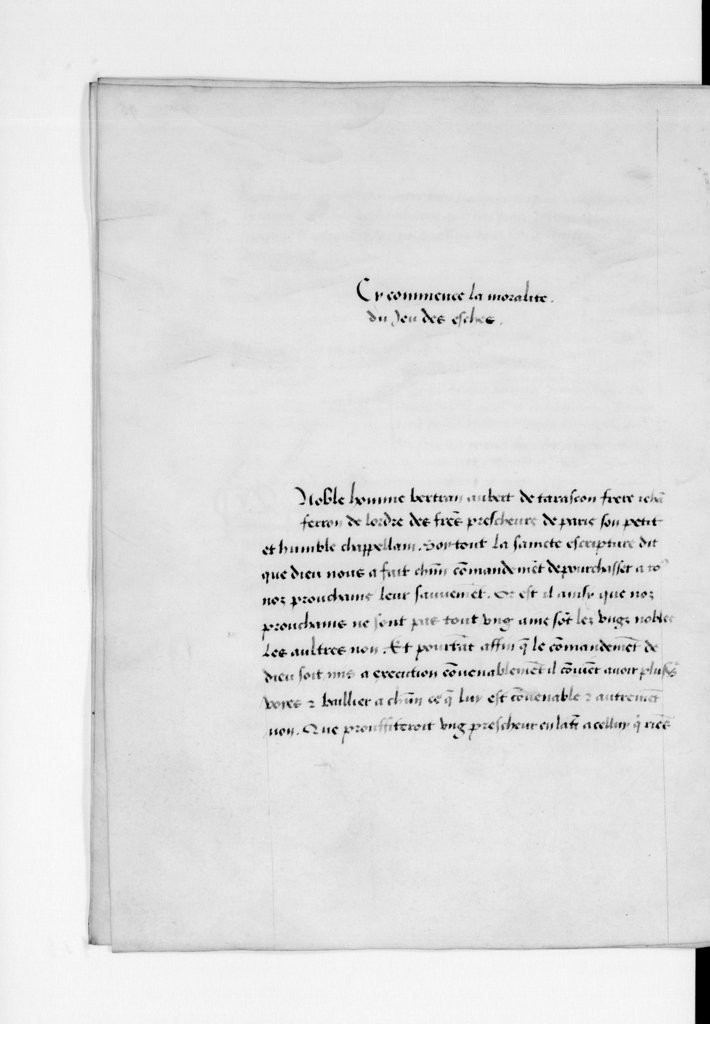 Cy commence la moralite.
du Jeu des esches.
Noble homme bertran aubert de tarascon frere iehā
ferron de lordre des frēs prescheurs de paris son petit
et humble chappellain. Sortout La saincte escripture dit
que dieu nous a fait chūn cōmandemēt de pourchasser a to9
noz prouchains leur sauvemēt. Or est il ainsy que noz
prouchains ne sont pas tout vng ains sōt lez vngz nobles
Les aultres non. Et pourtāt affin q̄ le cōmandemēt de
dieu soit mis a execution cōvenablemēt il cōvient avoir plusrs
voyes ⁊ baillier a chūn ce q̄ luy est cōvenable ⁊ autremēt
non. Que prouffiteroit vng prescheur en latī a celluy q̄ riēs